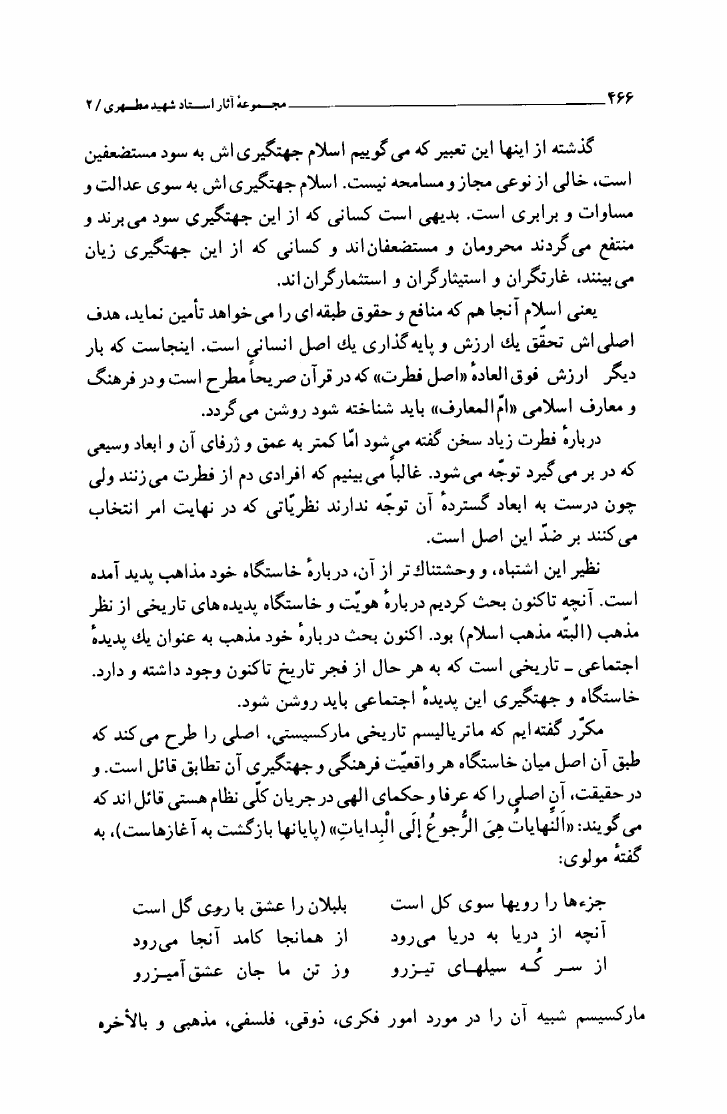 ۴۶۶ مجـموعهٔ آثار اسـتاد شهید مطـهری / ۲
گذشته از اینها این تعبیر که می‌گوییم اسلام جهتگیری‌اش به سود مستضعفین
است، خالی از نوعی مجاز و مسامحه نیست. اسلام جهتگیری‌اش به سوی عدالت و
مساوات و برابری است. بدیهی است کسانی که از این جهتگیری سود می‌برند و
منتفع می‌گردند محرومان و مستضعفان‌اند و کسانی که از این جهتگیری زیان
می‌بینند، غارتگران و استیثارگران و استثمارگران‌اند.
یعنی اسلام آنجا هم که منافع و حقوق طبقه‌ای را می‌خواهد تأمین نماید، هدف
اصلی‌اش تحقّق یك ارزش و پایه‌گذاری یك اصل انسانی است. اینجاست که بار
دیگر ارزش فوق‌العادهٔ «اصل فطرت» که در قرآن صریحاً مطرح است و در فرهنگ
و معارف اسلامی «امّ‌المعارف» باید شناخته شود روشن می‌گردد.
دربارهٔ فطرت زیاد سخن گفته می‌شود امّا کمتر به عمق و ژرفای آن و ابعاد وسیعی
که در بر می‌گیرد توجّه می‌شود. غالباً می‌بینیم که افرادی دم از فطرت می‌زنند ولی
چون درست به ابعاد گستردهٔ آن توجّه ندارند نظریّاتی که در نهایت امر انتخاب
می‌کنند بر ضدّ این اصل است.
نظیر این اشتباه، و وحشتناك‌تر از آن، دربارهٔ خاستگاه خود مذاهب پدید آمده
است. آنچه تاکنون بحث کردیم دربارهٔ هویّت و خاستگاه پدیده‌های تاریخی از نظر
مذهب (البتّه مذهب اسلام) بود. اکنون بحث دربارهٔ خود مذهب به عنوان یك پدیدهٔ
اجتماعی ـ تاریخی است که به هر حال از فجر تاریخ تاکنون وجود داشته و دارد.
خاستگاه و جهتگیری این پدیدهٔ اجتماعی باید روشن شود.
مکرّر گفته‌ایم که ماتریالیسم تاریخی مارکسیستی، اصلی را طرح می‌کند که
طبق آن اصل میان خاستگاه هر واقعیّت فرهنگی و جهتگیری آن تطابق قائل است. و
در حقیقت، آن اصلی را که عرفا و حکمای الهی در جریان کلّی نظام هستی قائل‌اند که
می‌گویند: «اَلنِّهایاتُ هِیَ الرُّجوعُ إلَی الْبِدایاتِ» (پایانها بازگشت به آغازهاست)، به
گفتهٔ مولوی:
جزءها را رویها سوی کل است بلبلان را عشق با روی گل است
آنچه از دریا به دریا می‌رود از همانجا کامد آنجا می‌رود
از سـر کُـه سیلهـای تیـزرو وز تن ما جان عشق‌آمیـزرو
مارکسیسم شبیه آن را در مورد امور فکری، ذوقی، فلسفی، مذهبی و بالأخره